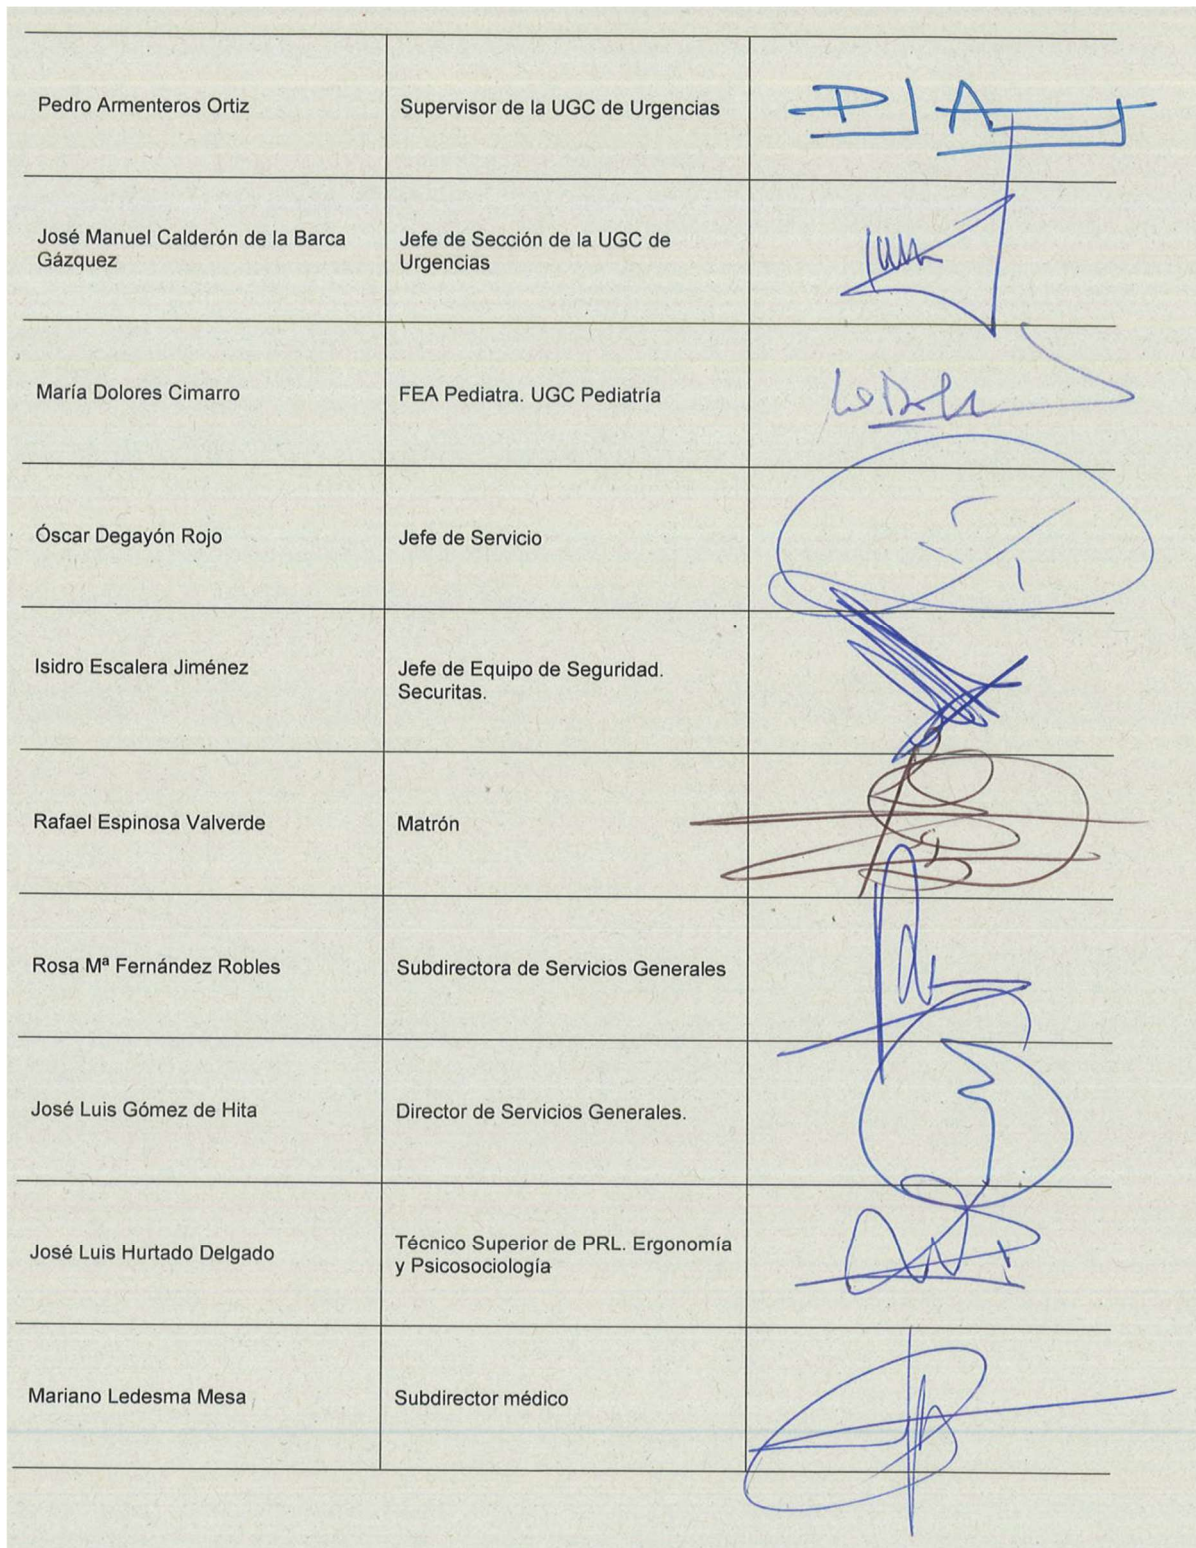 Pedro Armenteros Ortiz
Supervisor de la UGC de Urgencias
José Manuel Calderón de la Barca
Gázquez
Jefe de Sección de la UGC de
Urgencias
María Dolores Cimarro
FEA Pediatra. UGC Pediatría
Óscar Degayón Rojo
Jefe de Servicio
Isidro Escalera Jiménez
Jefe de Equipo de Seguridad.
Securitas.
Rafael Espinosa Valverde
Matrón
Rosa Mª Fernández Robles
Subdirectora de Servicios Generales
José Luis Gómez de Hita
Director de Servicios Generales.
José Luis Hurtado Delgado
Técnico Superior de PRL. Ergonomía
y Psicosociología
Mariano Ledesma Mesa
Subdirector médico